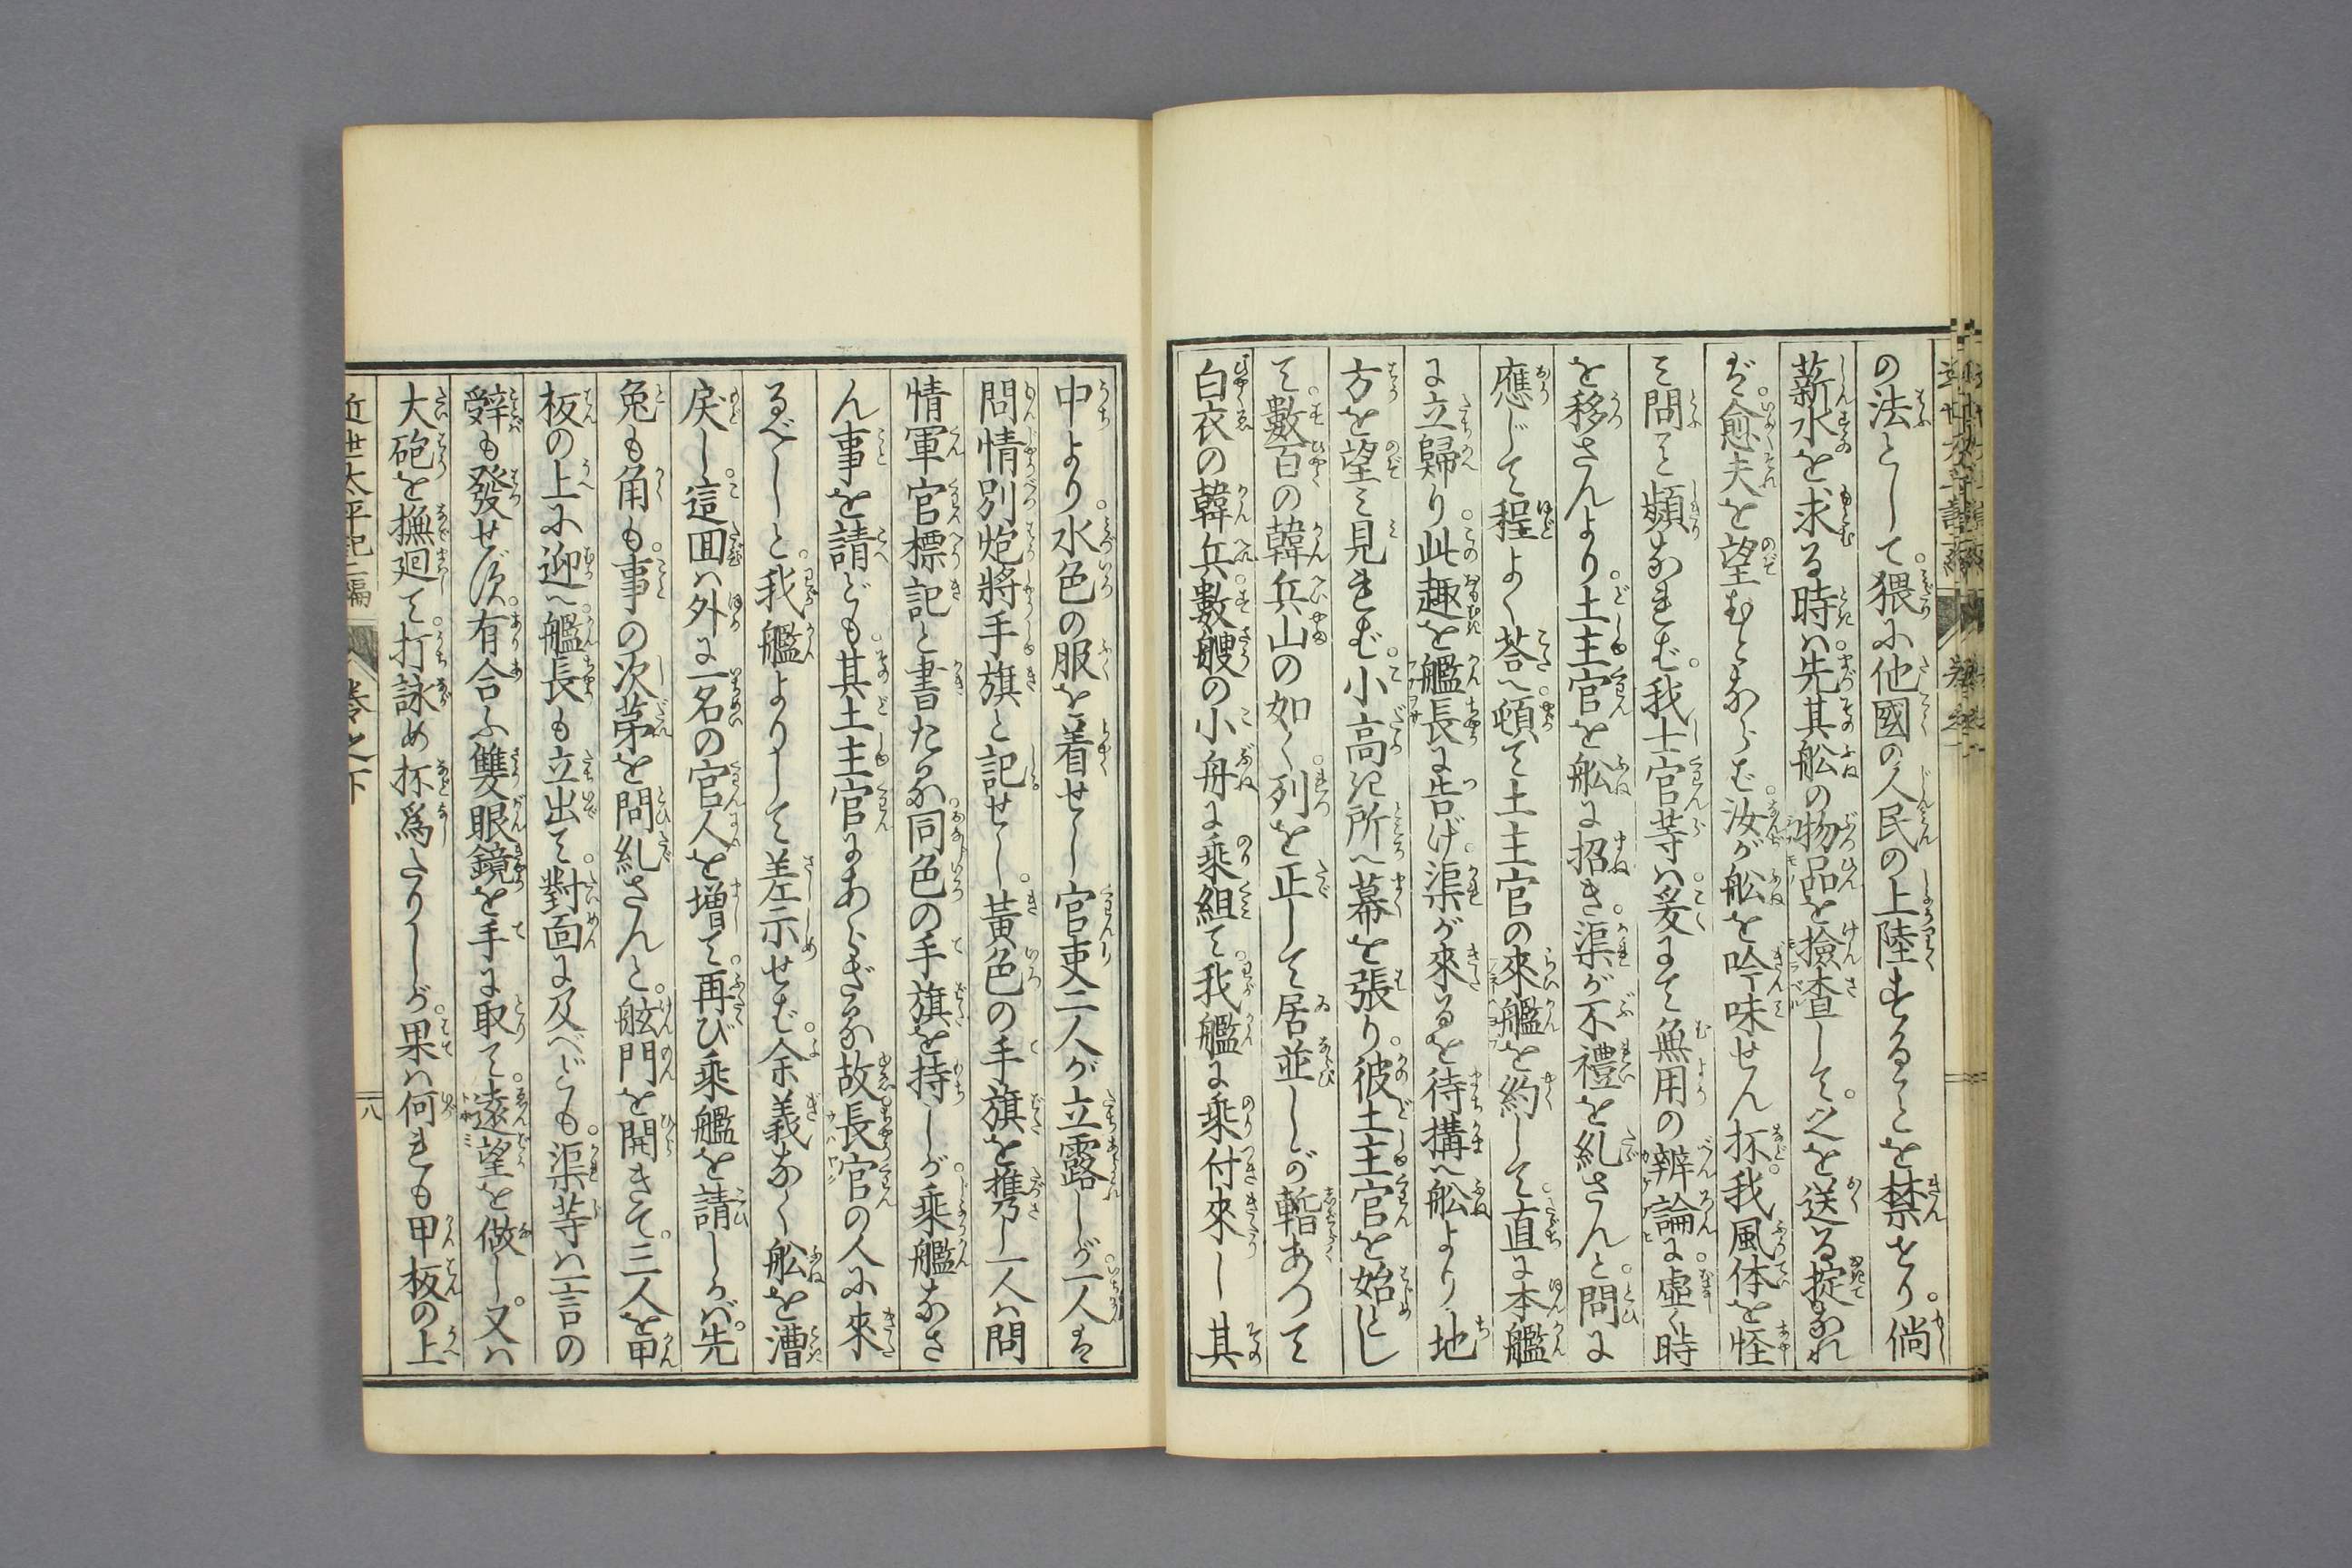 の法として。猥に他國の人民の上陸することを禁せり。倘
薪水を求る時ハ。先其舩の物品を撿査して。之を送る掟なれ
ば。愈夫を望むとならむ。汝が舩を吟味せん抔。我風体を怪
ミ問こと頻なれむ。我士官等ハ爰にて無用の辨論に。虚く時
を移さんより。土主官を舩に招き。渠が不禮を糺さんと。問に
應じて程よく荅へ。頓て土主官の來艦を約して。直に本艦
に立歸り。此趣を艦長に告げ。渠が來るを待搆へ舩より地
方を望ミ見れむ。小高き所へ幕を張り。彼土主官を始とし
て。數百の韓兵山の如く。列を正して居並しが暫あつて
白衣の韓兵。數艘の小舟に乘組て。我艦に乘付來し其
中より。水色の服を着せし官吏二人が立露しが。一人は
問情別炮將手旗と記せし。黄色の手旗を携し一人ハ問
情軍官標記と書たる。同色の手旗を持しが。乘艦なさ
ん事を請へども。其土主官にあらざる故。長官の人に來
るべしと。我艦よりして差示せむ。余義なく舩を漕
戻し。這囬ハ外に一名の官人を増て。再び乘艦を請しかバ。先
兔も角も。事の次第を問糺さんと。舷門を開きて。三人を甲
板の上に迎へ。艦長も立出て。對面に及べども。渠等ハ一言の
辤も發せず。有合ふ雙眼鏡を手に取て。遠望を做し。又ハ
大砲を撫廻て。打詠め抔爲たりしが。果ハ何れも甲板の上
近世太平記二編
卷之下
八